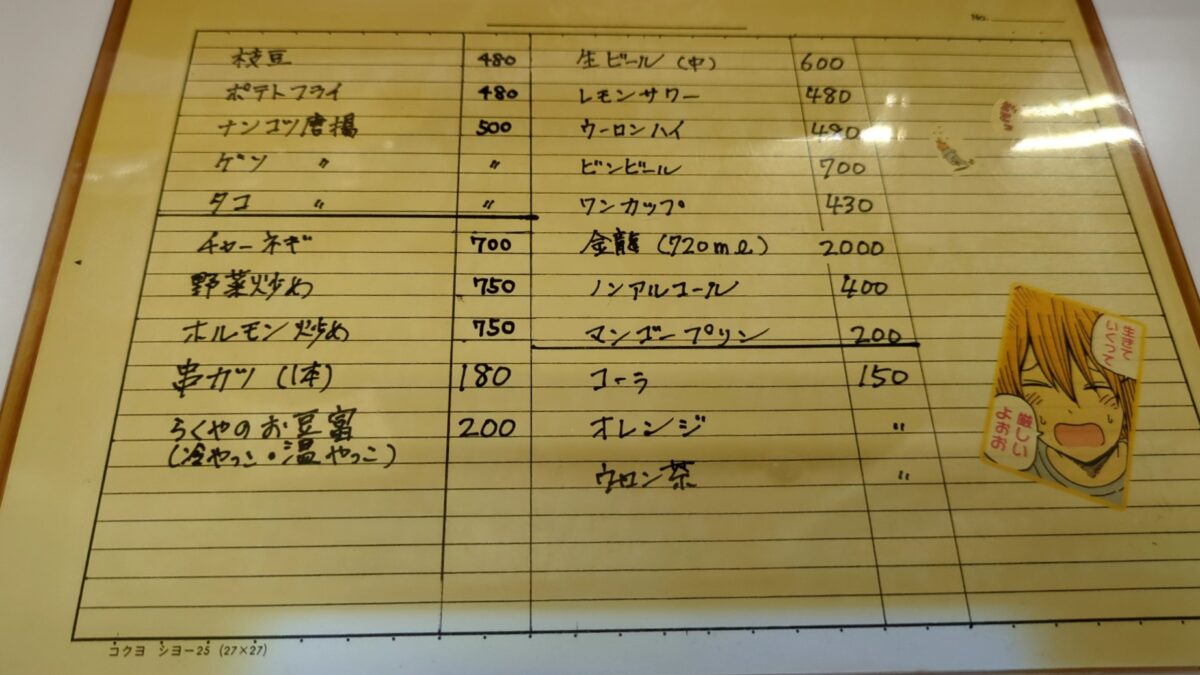 No.
枝豆 480
ポテトフライ 480
ナンコツ唐揚 500
ゲソ 〃 〃
タコ 〃 〃
チャーネギ 700
野菜炒め 750
ホルモン炒め 750
串カツ (1本) 180
らくやのお豆富 200
(冷やっこ・温やっこ)
生ビール (中) 600
レモンサワー 480
ウーロンハイ 480
ビンビール 700
ワンカップ 430
金龍 (720ml) 2000
ノンアルコール 400
マンゴープリン 200
コーラ 150
オレンジ 〃
ウーロン茶 〃
生きて
いくって
厳しい
よぉぉ
コクヨ シヨー25 (27×27)